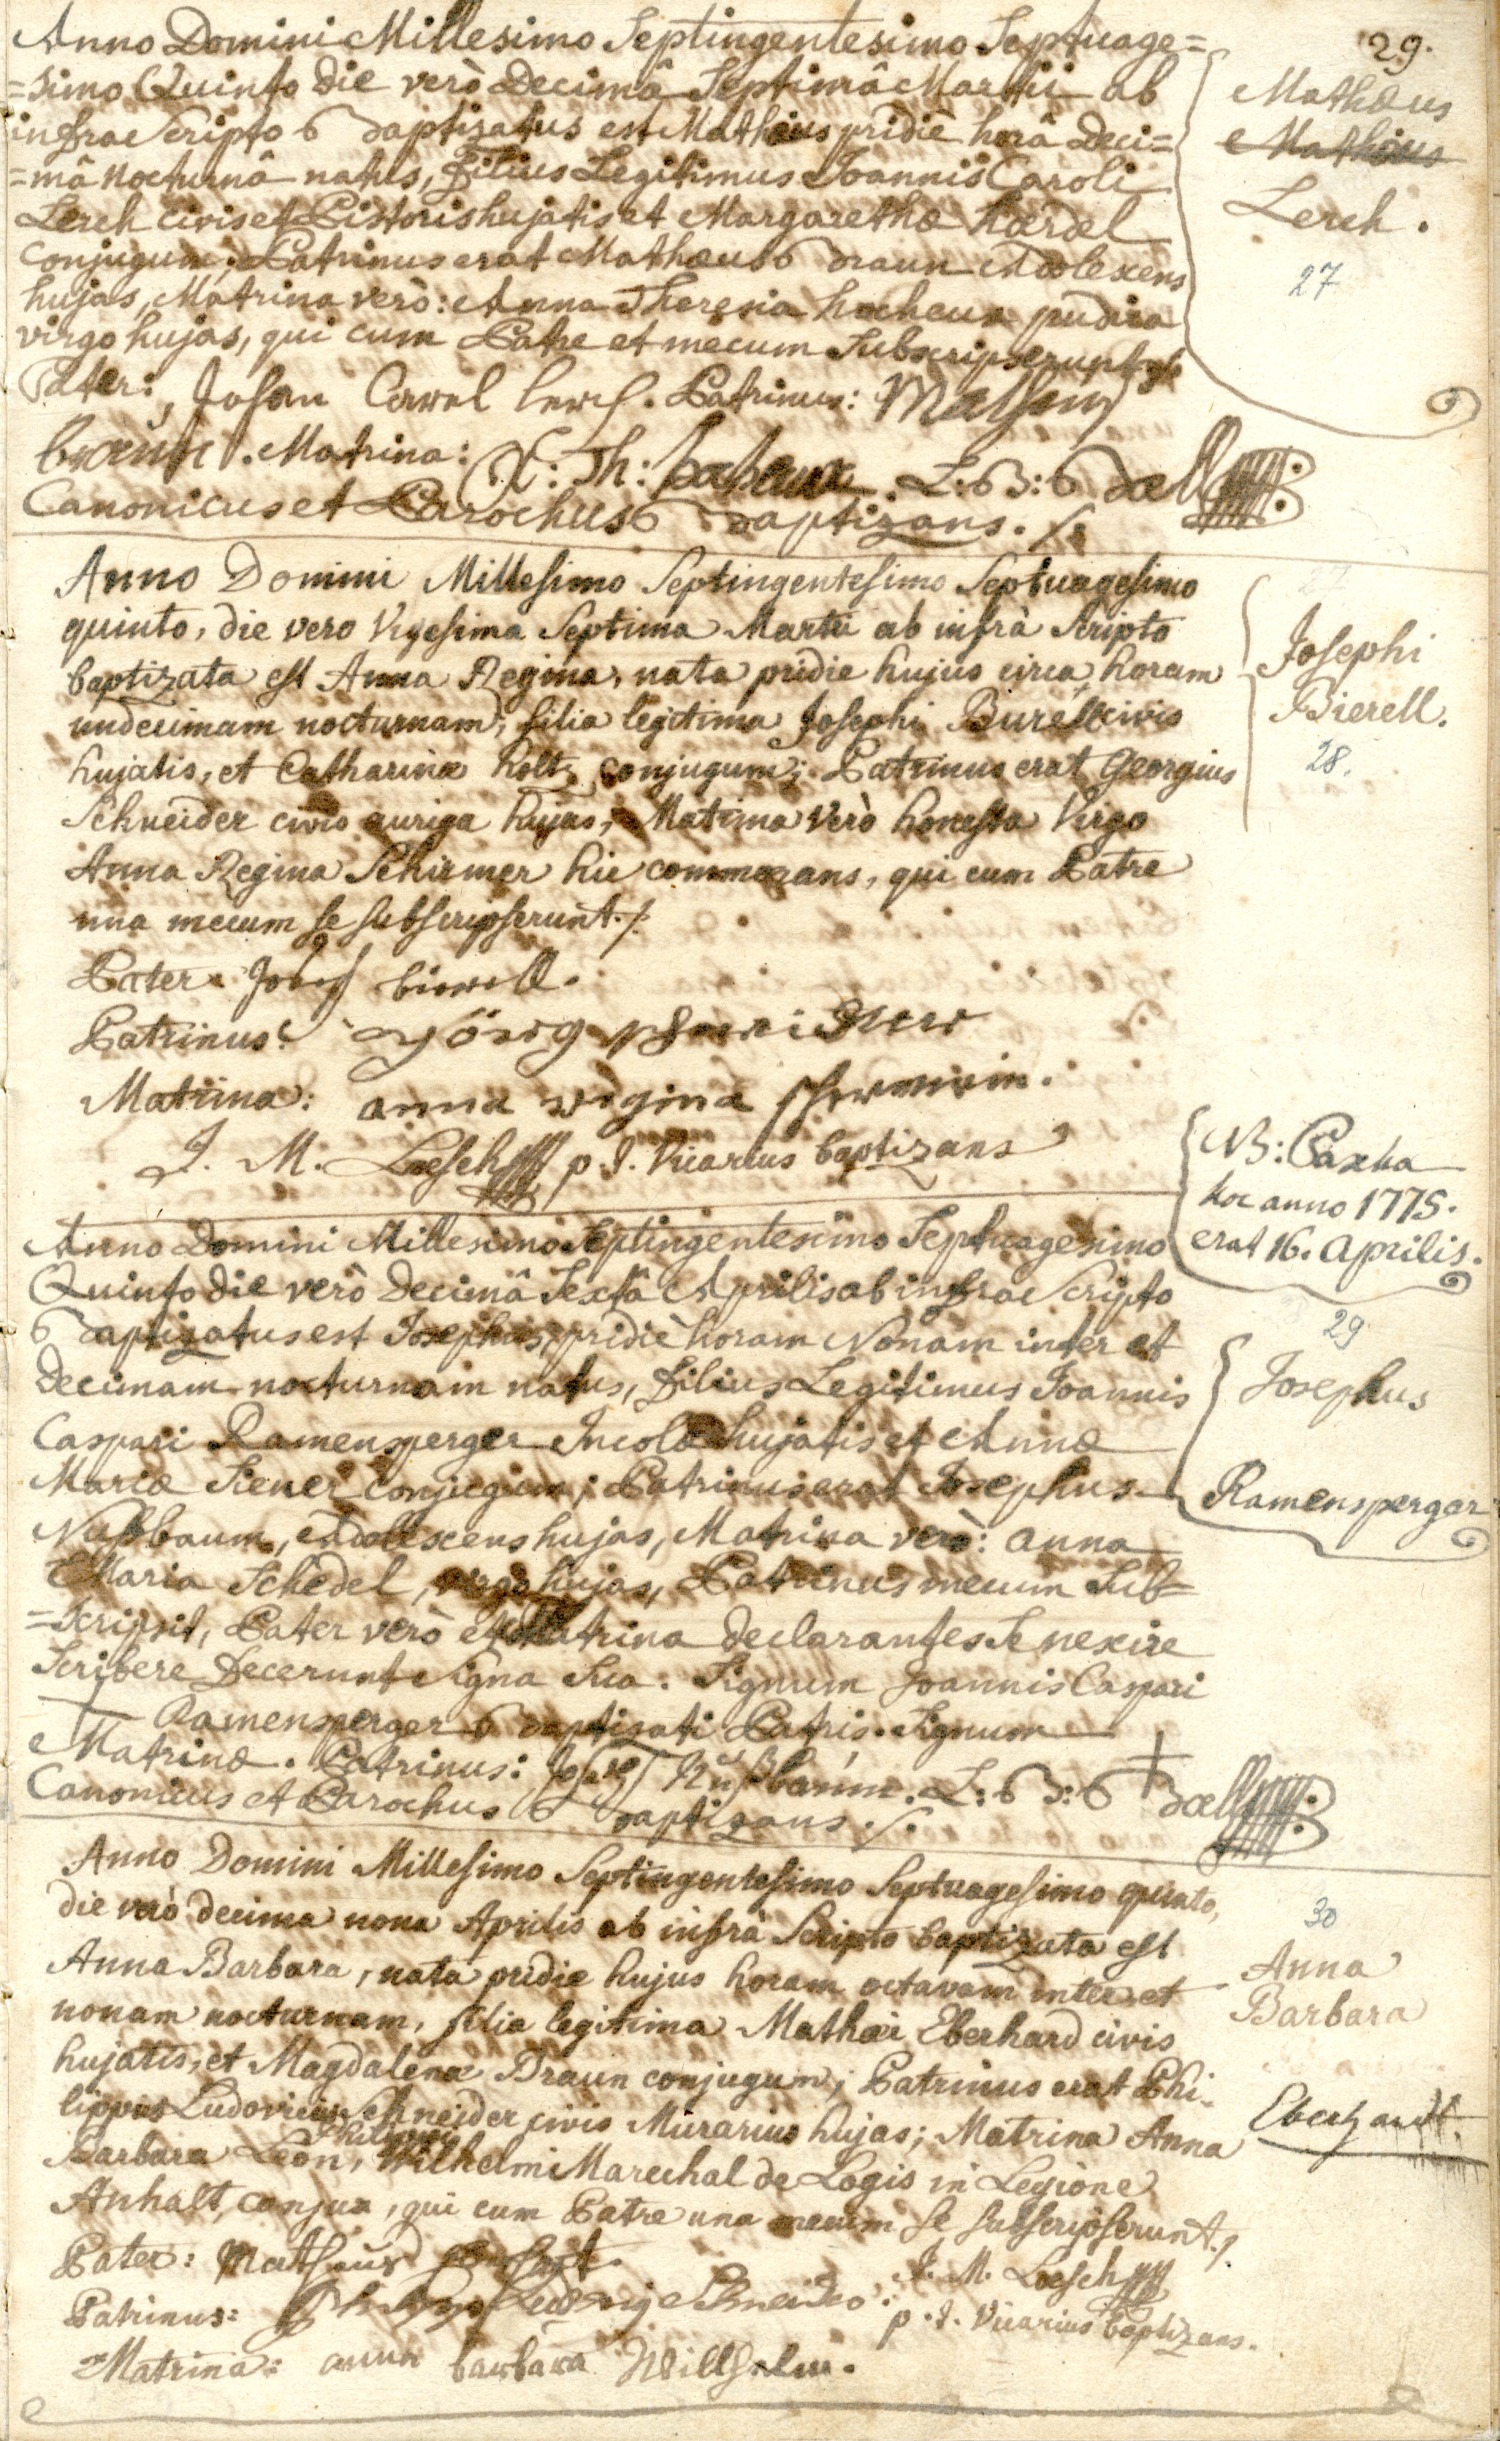 29.
Anno Domini Millesimo Septingentesimo Septuage=
=simo Quinto die verò Decimâ Septimâ Martii ab
infrae Scripto Baptizatus est Mathæus pridiè horâ Deci=
=mâ Nocturnâ natus, Filius Legitimus Joannis Caroli
Lerch civis et Pistoris hujatis et Margarethæ hærdel
Conjugum; Patrinus erat Mathæus Braun Adolexens
hujas, Matrina verò: Anna Theresia hocheux pudica
virgo hujas, qui cum Patre et mecum Subscripserunt
Pater: Johan Carel Lerch. Patrinus: Matheus
braun. Matrina: A: Th: hoheux. L: B: Boell
Canonicus et Parochus Baptizans. /.
Mathæus
Mathæus
Lerch.
27
Anno Domini Millesimo Septingentesimo Septuagesimo
quinto, die vero Vigesima Septima Martii ab infrà Scripto
baptizata est Anna Regina, nata pridie hujus circa horam
undecimam nocturnam, filia legitima Josephi Burell civis
hujatis, et Catharinæ holtz conjugum; Patrinus erat Georgius
Schneider civis auriga hujas, Matrina Verò honesta Virgo
Anna Regina Schirmer hic commorans, qui cum Patre
una mecum se subscripserunt. /.
Pater: Josef bierell.
Patrinus: görg schneider
Matrina: anna regina schirmerin.
J. M. Loesch p. t. Vicarius baptizans
27
Josephi
Bierell.
28.
NB: Pascha
hoc anno 1775.
erat 16. Aprilis.
Anno Domini Millesimo Septingentesimo Septuagesimo
Quinto die verò Decimâ Sextâ Aprilis ab infrae Scripto
Baptizatus est Josephus, pridiè horam Nonam inter et
Decimam nocturnam natus, Filius Legitimus Joannis
Caspari Ramensperger Incolæ hujatis et Annæ
Mariæ Siener Conjugum; Patrinus erat Josephus
Nußbaum, Adolexens hujas, Matrina verò: Anna
Maria Schedel, virgo hujas, Patrinus mecum Sub=
=scripsit, Pater verò et Matrina declarantes Se nexire
Scribere Decerunt Signa Sua. Signum Joannis Caspari
Ramensperger Baptizati Patris. Signum +
Matrinæ. Patrinus: Josef Nußbaum. L: B: Boell
Canonicus et Parochus Baptizans. /.
29
Josephus
Ramensperger
Anno Domini Millesimo Septingentesimo Septuagesimo quinto,
die verò decima nona Aprilis ab infrà Scripto baptizata est
Anna Barbara, nata pridie hujus horam octavam inter et
nonam nocturnam, filia legitima Mathæi Eberhard civis
hujatis, et Magdalenæ Braun conjugum; Patrinus erat Phi-
lippus Ludovicus Schneider civis Murarius hujas; Matrina Anna
Barbara Leon, Philippi Wilhelmi Marechal de Logis in Legione
Anhalt, conjux, qui cum Patre una mecum se subscripserunt. /.
Pater: Matheus
Patrinus: Philipp Ludwig Schneider:
Matrina: anna barbara Willhelm.
J. M. Loesch
p. t. Vicarius baptizans.
30
Anna
Barbara
Eberhardt.